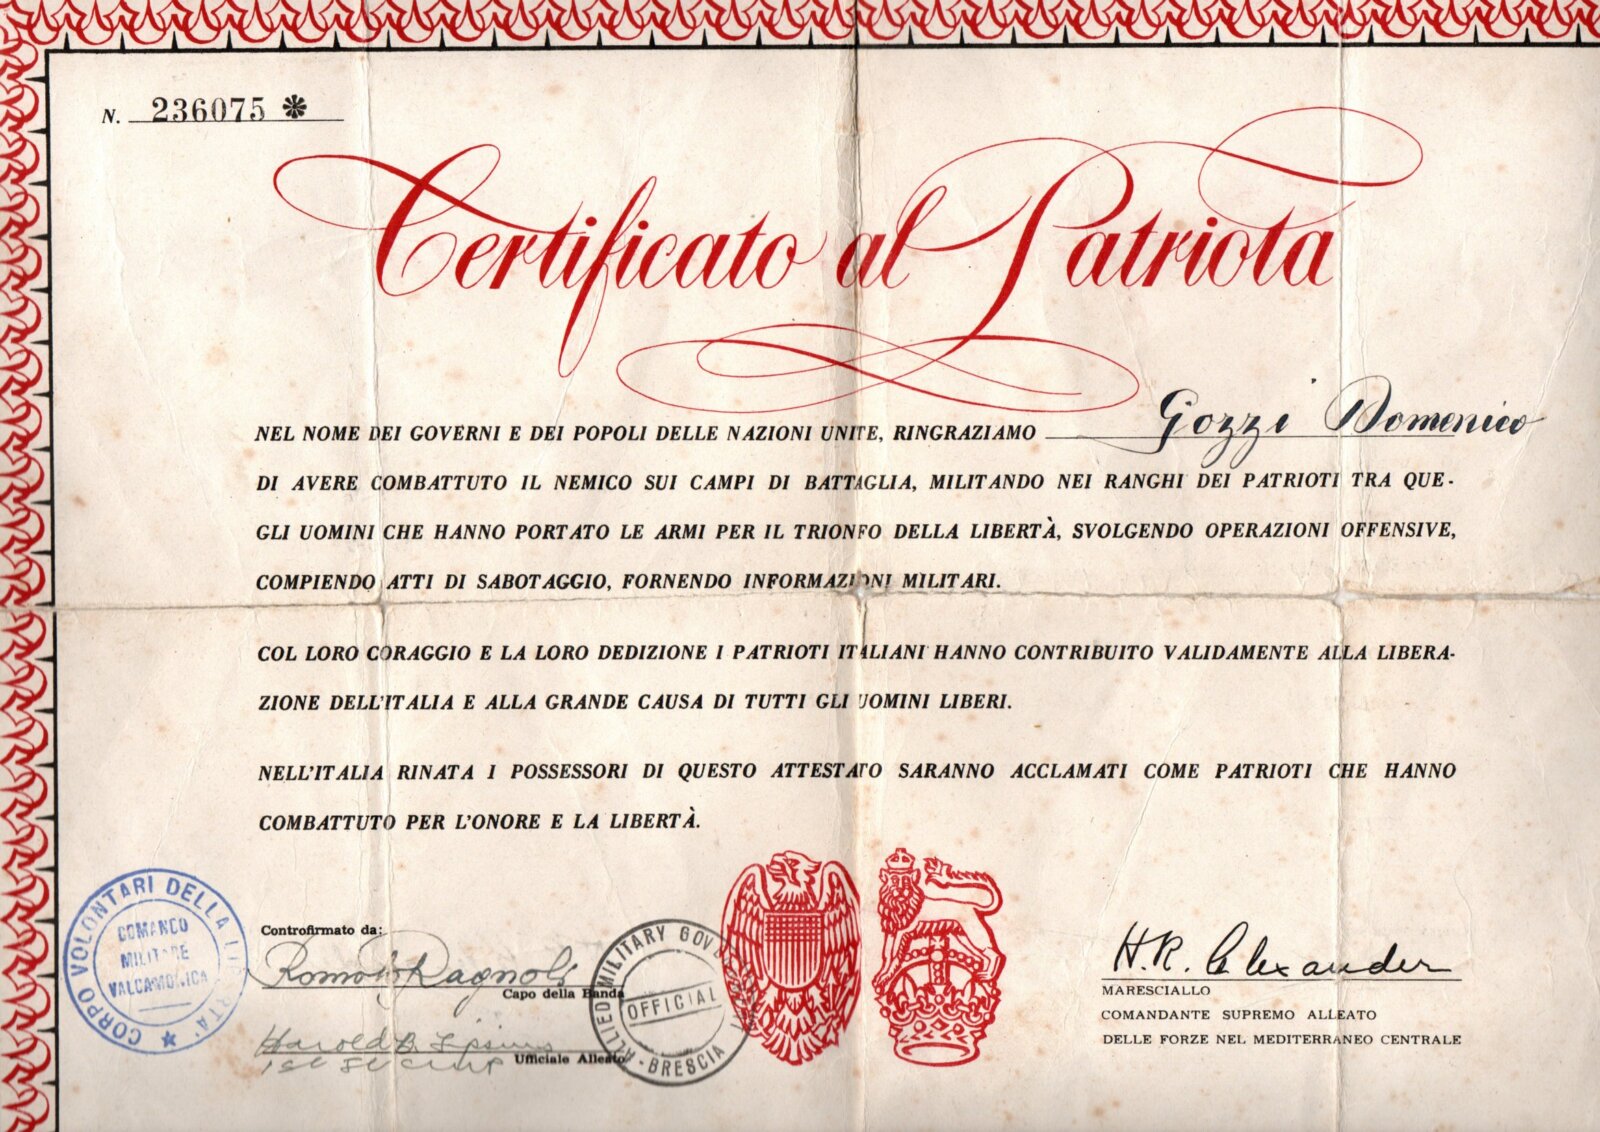 N. 236075 *
Certificato al Patriota
NEL NOME DEI GOVERNI E DEI POPOLI DELLE NAZIONI UNITE, RINGRAZIAMO Gozzi Domenico
DI AVERE COMBATTUTO IL NEMICO SUI CAMPI DI BATTAGLIA, MILITANDO NEI RANGHI DEI PATRIOTI TRA QUE-
GLI UOMINI CHE HANNO PORTATO LE ARMI PER IL TRIONFO DELLA LIBERTÀ, SVOLGENDO OPERAZIONI OFFENSIVE,
COMPIENDO ATTI DI SABOTAGGIO, FORNENDO INFORMAZIONI MILITARI.
COL LORO CORAGGIO E LA LORO DEDIZIONE I PATRIOTI ITALIANI HANNO CONTRIBUITO VALIDAMENTE ALLA LIBERA-
ZIONE DELL'ITALIA E ALLA GRANDE CAUSA DI TUTTI GLI UOMINI LIBERI.
NELL'ITALIA RINATA I POSSESSORI DI QUESTO ATTESTATO SARANNO ACCLAMATI COME PATRIOTI CHE HANNO
COMBATTUTO PER L'ONORE E LA LIBERTÀ.
CORPO VOLONTARI DELLA LIBERTA'
COMANDO
MILITARE
VALCAMONICA
Controfirmato da:
Romolo Ragnoli
Capo della Banda
Harold B.
Ufficiale Alleato
ALLIED MILITARY GOV
OFFICIAL
- BRESCIA
H.R. Alexander
MARESCIALLO
COMANDANTE SUPREMO ALLEATO
DELLE FORZE NEL MEDITERRANEO CENTRALE